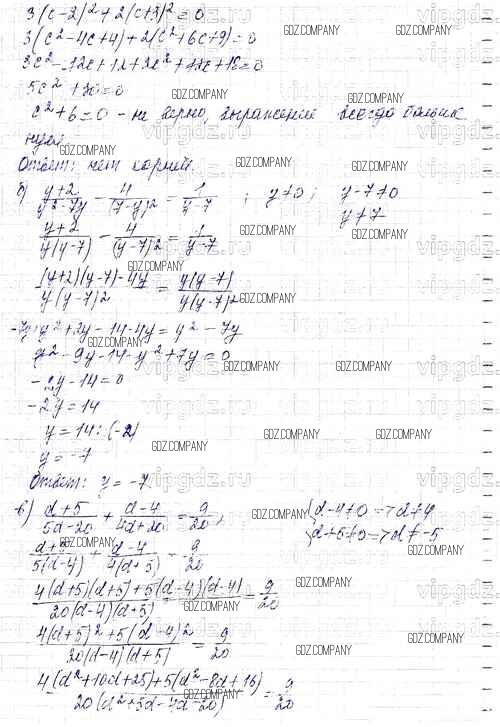 3(c-2)²+2(c+3)²=0
3(c²-4c+4)+2(c²+6c+9)=0
3c²-12c+12+2c²+12c+18=0
5c²+30=0
c²+6=0 - не верно, выражение всегда больше
нуля
Ответ: нет корней.
б) (y+2)/(y²-7y) - 4/(7-y)² = 1/(y-7) ; y≠0; y-7≠0
y≠7
(y+2)/(y(y-7)) - 4/(y-7)² = 1/(y-7)
((y+2)(y-7)-4y)/(y(y-7)²) = (y(y-7))/(y(y-7)²)
-7y+y²+2y-14-4y=y²-7y
y²-9y-14-y²+7y=0
-2y-14=0
-2y=14
y=14:(-2)
y=-7
Ответ: y=-7.
в) (d+5)/(5d-20) + (d-4)/(4d+20) = 9/20; {d-4≠0 => d≠4
{d+5≠0 => d≠-5
(d+5)/(5(d-4)) + (d-4)/(4(d+5)) = 9/20
(4(d+5)(d+5)+5(d-4)(d-4))/(20(d-4)(d+5)) = 9/20
(4(d+5)²+5(d-4)²)/(20(d-4)(d+5)) = 9/20
(4(d²+10d+25)+5(d²-8d+16))/(20(d²+5d-4d-20)) = 9/20
GDZ.COMPANY
vipgdz.ru